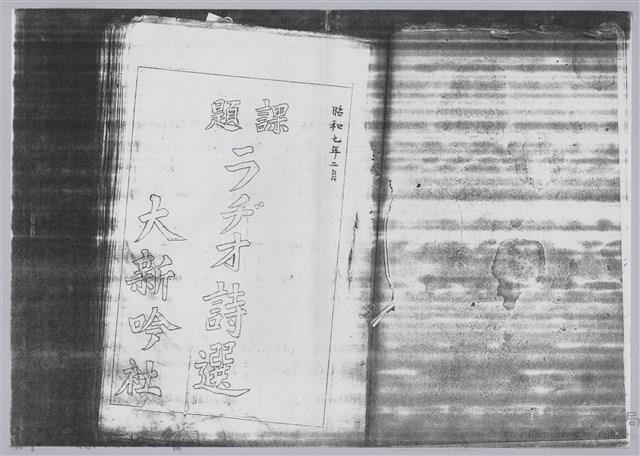 昭和七年二月
課題
ラヂオ詩選
大新吟社